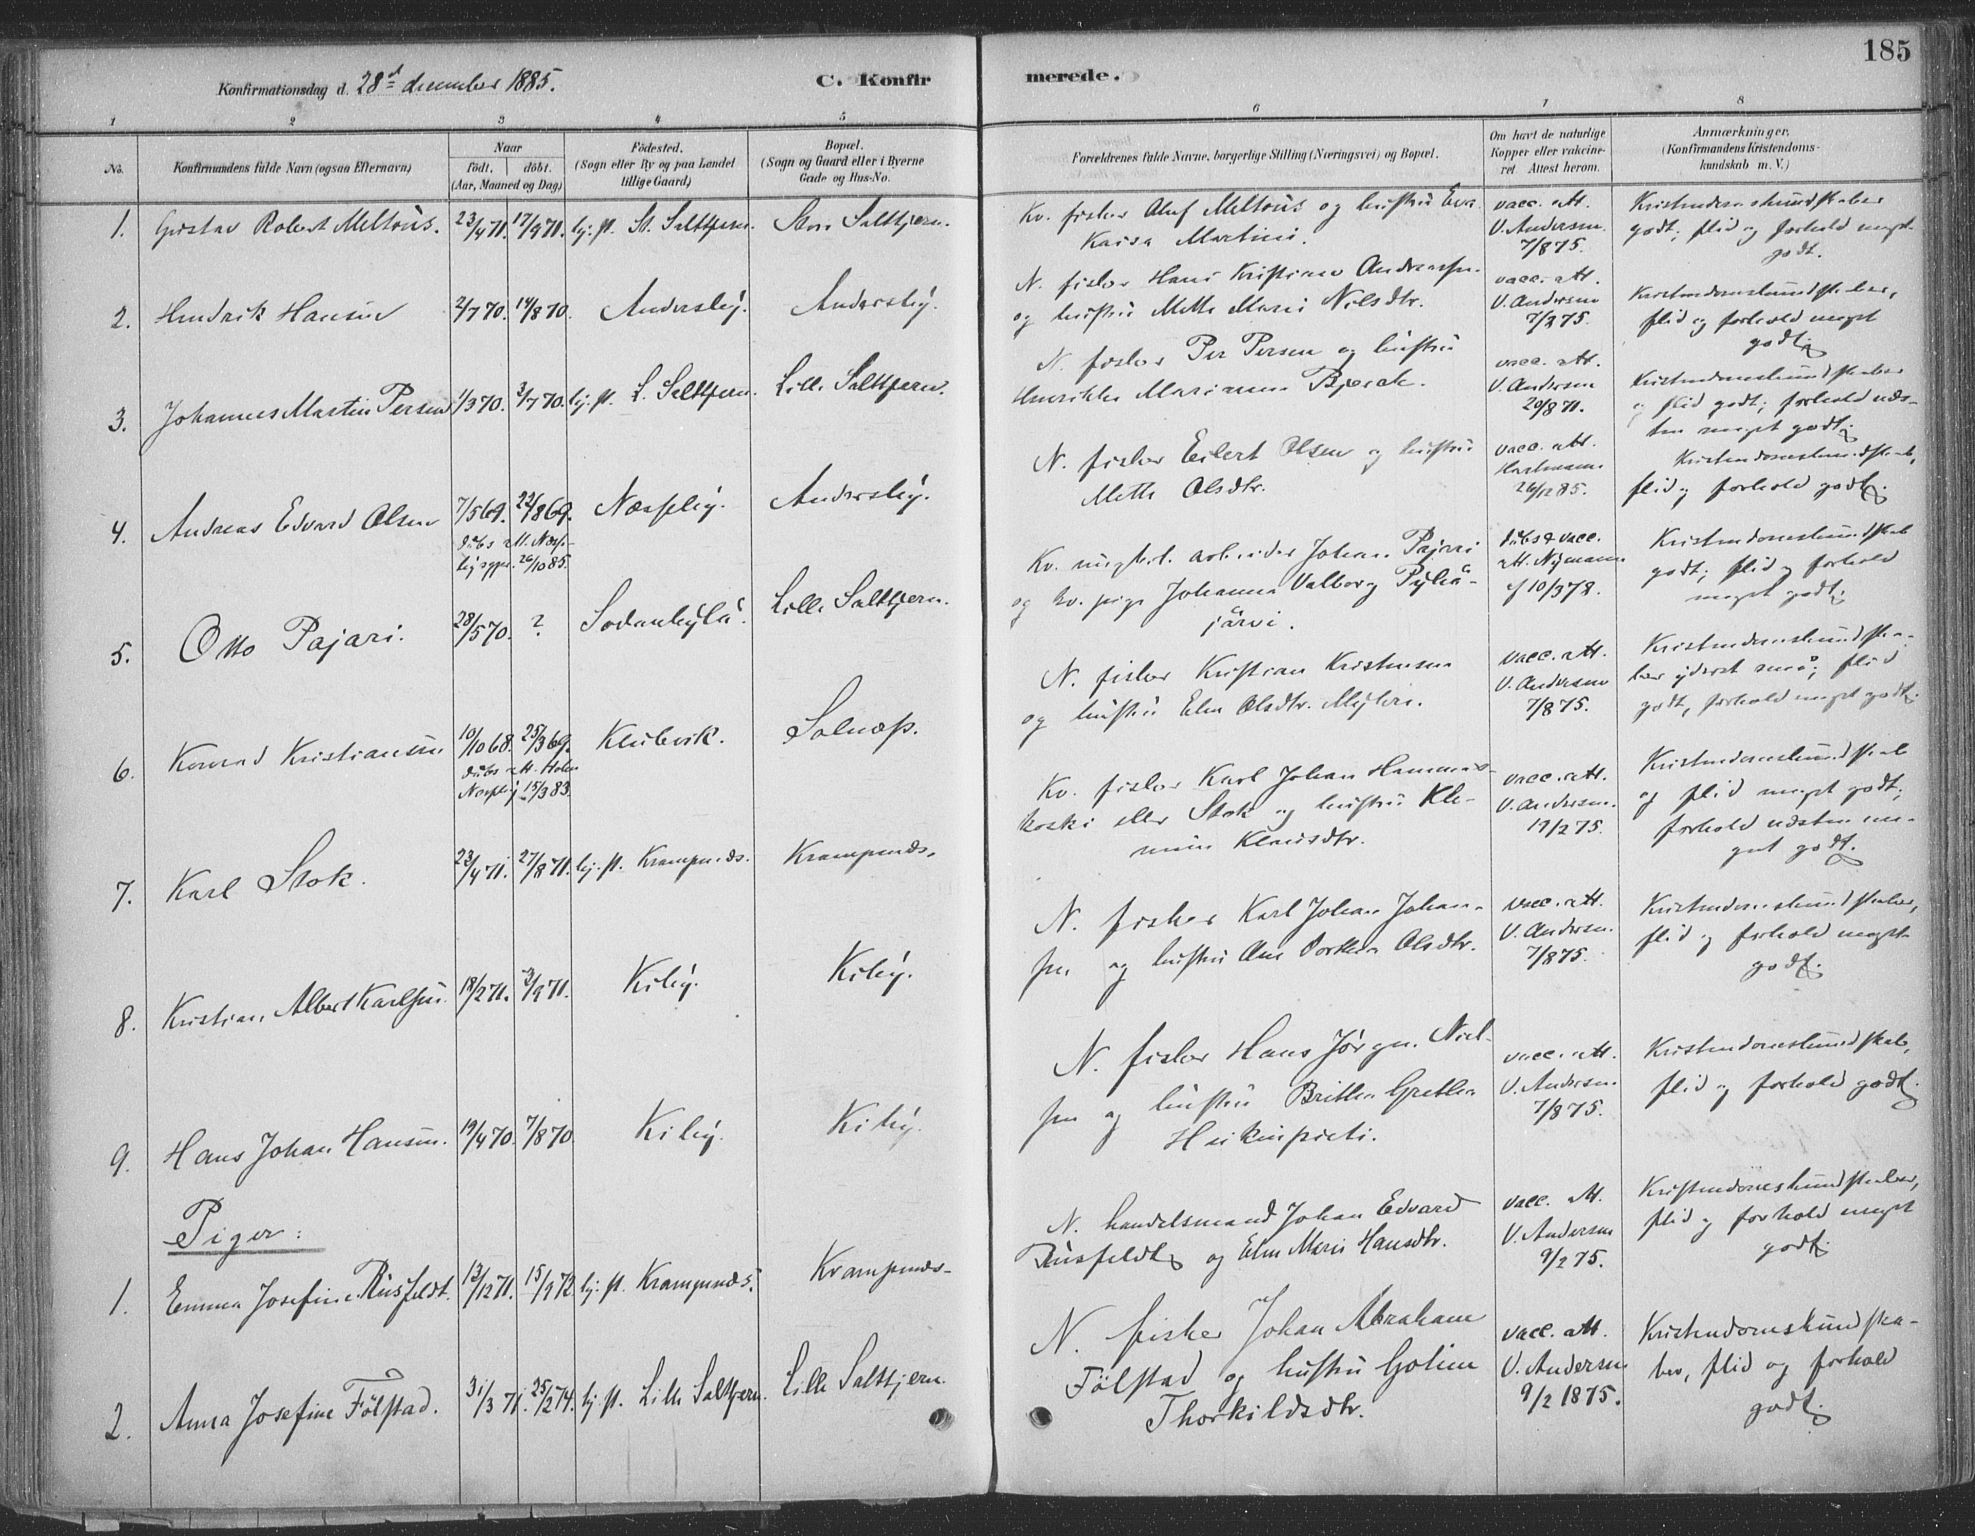 185
Konfirmationsdag d. 28d december 1885.
C. Konfirmerede.
1 2 3 4 5 6 7 8
No.
Konfirmandens fulde Navn (ogsaa Efternavn)
Naar
födt. döbt.
(Aar, Maaned og Dag)
Födested.
(Sogn eller By og paa Landet
tillige Gaard)
Bopæl.
(Sogn og Gaard eller i Byerne
Gade og Hus-No.
Forældrenes fulde Navne, borgerlige Stilling (Næringsvei) og Bopæl.
Om havt de naturlige
Kopper eller vakcine-
ret Attest herom.
Anmærkninger.
(Konfirmandens Kristendoms-
kundskab m. V.)
1. Gustav Robert Meltoüs. 23/4 71. 17/9 71. hj. dt. St. Saltfjern. Stor Saltfjern.
Kv. fisker Oluf Meltoüs og hustru Eva
Kaisa Martini.
vacc. att.
V. Andersen
7/8 75.
Kristendomskundskaber
godt; flid og forhold meget
godt.
2. Hendrik Hansen 2/7 70. 14/8 70. Andersby. Andersby.
N. fisker Hans Kristian Andreassen
og hustru Mette Marie Nilsdtr.
vacc. att.
V. Andersen
Kristendomskundskaber,
flid og forhold meget
godt.
3. Johannes Martin Persen 1/3 70. 3/7 70. L. Saltfjern. Lille Saltfjern.
N. fisker Per Persen og hustru
Henrikke Marianne
vacc. att.
V. Andersen
20/8 71.
Kristendomskundskaber
og flid godt; forhold næs-
ten meget godt.
4. Andreas Edvard Olsen 7/5 69. 22/8 69. Næsseby. Andersby.
dåbs att. Næsse-
by 26/10 85.
N. fisker Eilert Olsen og hustru
Mette Olsdtr.
vacc. att.
26/12 85.
Kristendomskundskab,
flid og forhold godt.
5. Otto Pajari. 28/5 70. ? Sodankylä. Lille Saltfjern.
Kv. ungkarl. arbeider Johan Pajari
og kv. pige Johanna Valborg Pyhä-
järvi.
dåbs & vacc.
att. Nymann
10/3 78.
Kristendomskundskab
godt; flid og forhold
meget godt.
6. Konrad Kristiansen 10/10 68. 25/3 69. Klubvik. Solnæs.
dåbs att. Holm
15/3 83.
N. fisker Kristian Kristensen
og hustru Elen Olsdtr.
vacc. att.
V. Andersen
7/8 75.
Kristendomskundska-
ber yderst små; flid
godt, forhold meget godt.
7. Karl Stok. 23/4 71. 27/8 71. Krampenæs. Krampenæs.
Kv. fisker Karl Johan
koski eller Stok og hustru Kle-
Klausdtr.
vacc. att.
V. Andersen.
19/2 75.
Kristendomskundskab
og flid meget godt;
forhold næsten me-
get godt.
8. Kristian Albert Karlsen. 18/2 71. 3/9 71. Kiby. Kiby.
N. fisker Karl Johan Johan-
sen og hustru Ane Dorthea Olsdtr.
vacc. att.
V. Andersen.
7/8 75.
Kristendomskundskaber,
flid og forhold meget
godt.
9. Hans Johan Hansen. 19/4 70. 7/8 70. Kiby. Kiby.
N. fisker Hans Jørgen Niel-
sen og hustru Britha Grethe
vacc. att.
V. Andersen.
7/8 75.
Kristendomskundskab,
flid og forhold godt.
Piger:
1. Emma Josefine Rüsfeldt. 13/12 71. 15/9 72. Krampenæs. Krampenæs.
N. handelsmand Johan Edvard
Rüsfeldt og Elen Marie Hansdtr.
vacc. att.
V. Andersen
9/2 75.
Kristendomskundskaber,
flid og forhold meget
godt.
2. Anna Josefine Fölstad. 31/3 71. 25/2 74. Lille Saltfjern. Lille Saltfjern.
N. fisker Johan Abraham
Fölstad og hustru Goline
Thorkildsdtr.
vacc. att.
V. Andersen
9/2 1875.
Kristendomskundska-
ber, flid og forhold
godt.